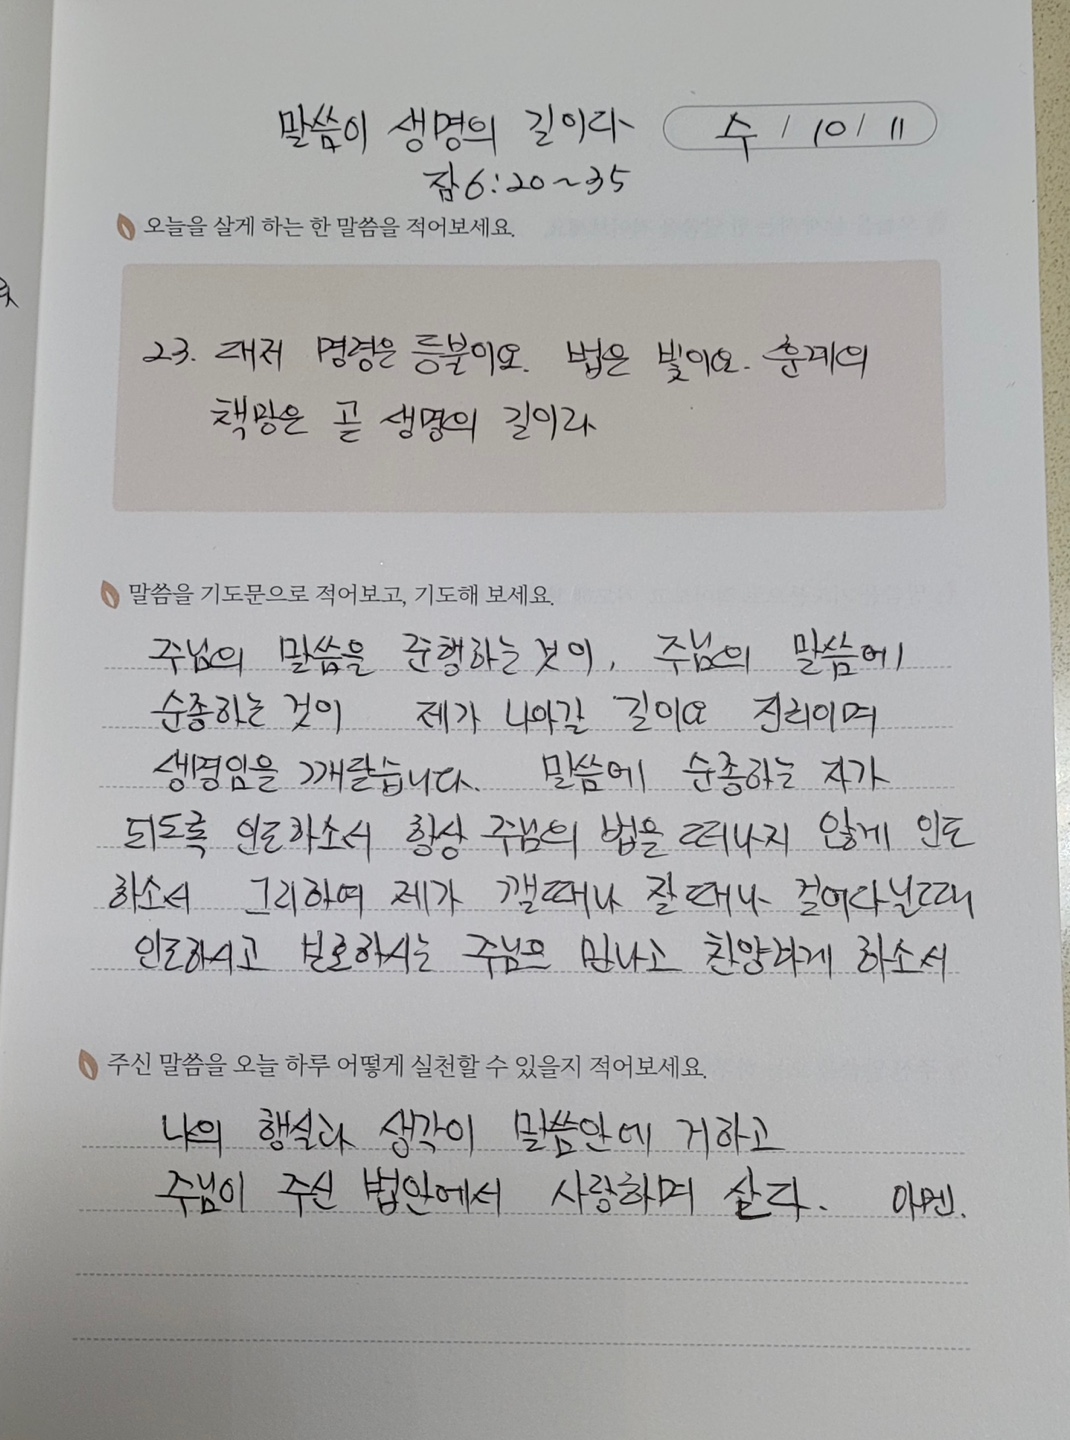 말씀이 생명의 길이다 수 / 10 / 11
잠6:20~35
오늘을 살게 하는 한 말씀을 적어보세요.
23. 대저 명령은 등불이요. 법은 빛이요. 훈계의
책망은 곧 생명의 길이라
말씀을 기도문으로 적어보고, 기도해 보세요.
주님의 말씀을 준행하는 것이, 주님의 말씀에
순종하는 것이 제가 나아갈 길이요 진리이며
생명임을 깨닫습니다. 말씀에 순종하는 자가
되도록 인도하소서 항상 주님의 법을 떠나지 않게 인도
하소서 그리하여 제가 깰때나 잘때나 걸어다닐때
인도하시고 보호하시는 주님을 만나고 찬양하게 하소서
주신 말씀을 오늘 하루 어떻게 실천할 수 있을지 적어보세요.
나의 행실과 생각이 말씀안에 거하고
주님이 주신 법안에서 사랑하며 살다. 아멘.